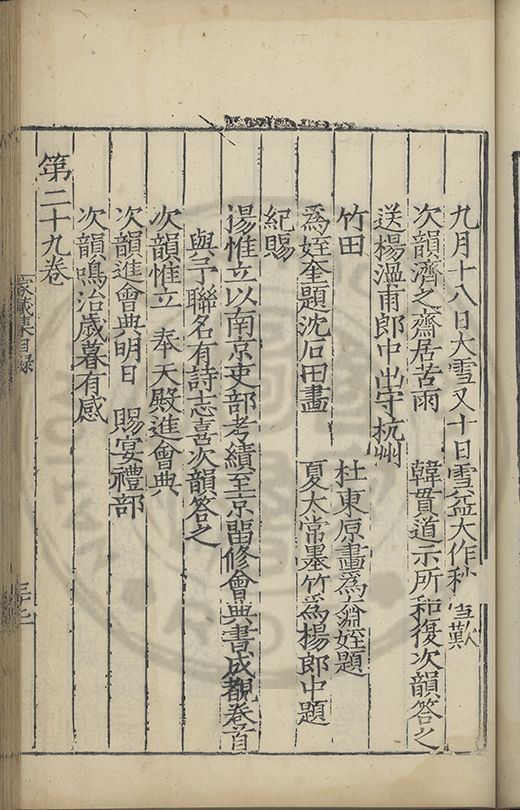 九月十八日大雪又十日雪益大作秋雪歎
次韻濟之齋居苦雨　韓貫道示所和復次韻答之
送楊溫甫郎中出守杭州
竹田　杜東原畫為奫姪題
為姪奎題沈石田畫　夏太常墨竹為楊郎中題
紀賜
揚惟立以南京吏部考績至京留修會典書成觀卷首
與予聯名有詩志喜次韻答之
次韻惟立　奉天殿進會典
次韻進會典明日　賜宴禮部
次韻鳴治歲暮有感
第二十九卷
家藏集目錄
三十七